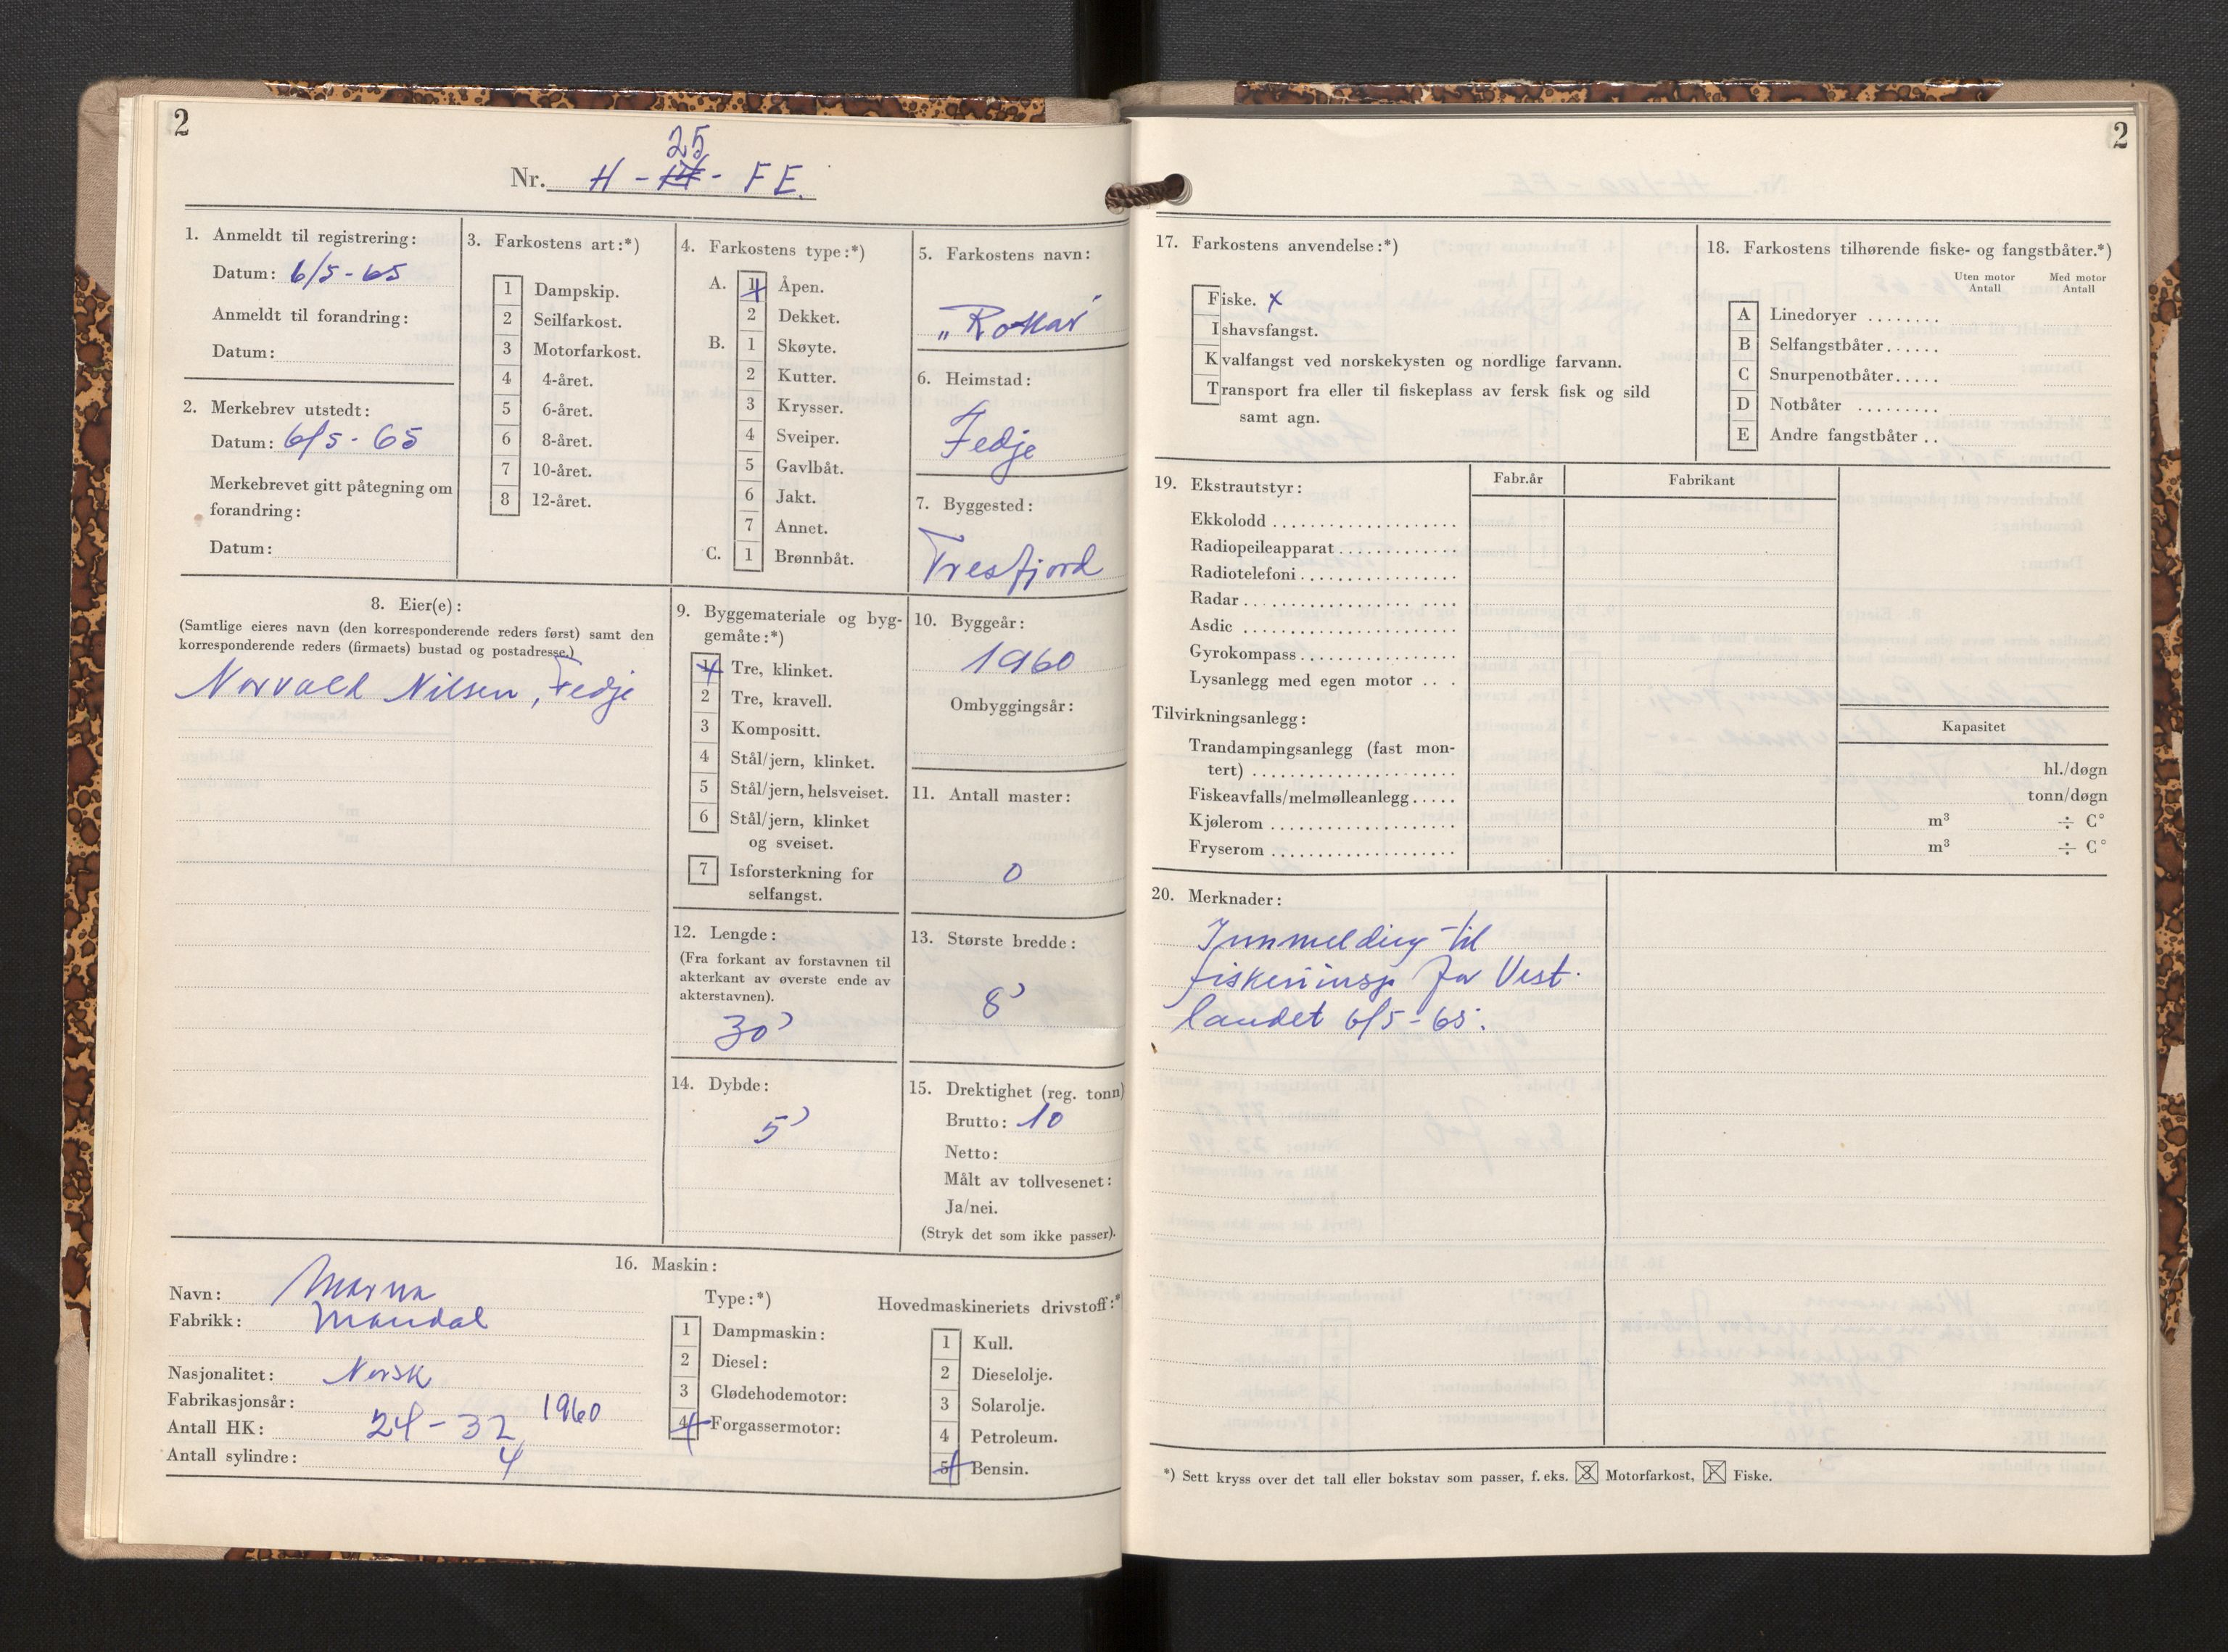 2
25
Nr. H - - FE.
1. Anmeldt til registrering:
Datum: 6/5-65
Anmeldt til forandring:
Datum:
2. Merkebrev utstedt:
Datum: 6/5-65
Merkebrevet gitt påtegning om
forandring:
Datum:
3. Farkostens art:*)
1 Dampskip.
2 Seilfarkost.
3 Motorfarkost.
4 4-året.
5 6-året.
6 8-året.
7 10-året.
8 12-året.
4. Farkostens type:*)
A. 1 Åpen.
2 Dekket.
B. 1 Skøyte.
2 Kutter.
3 Krysser.
4 Sveiper.
5 Gavlbåt.
6 Jakt.
7 Annet.
C. 1 Brønnbåt.
5. Farkostens navn:
6. Heimstad:
Fedje
7. Byggested:
Tresfjord
8. Eier(e):
(Samtlige eieres navn (den korresponderende reders først) samt den
korresponderende reders (firmaets) bustad og postadresse.)
Norvald Nilsen, Fedje
9. Byggemateriale og byg-
gemåte:*)
1 Tre, klinket.
2 Tre, kravell.
3 Kompositt.
4 Stål/jern, klinket.
5 Stål/jern, helsveiset.
6 Stål/jern, klinket
og sveiset.
7 Isforsterkning for
selfangst.
10. Byggeår:
1960
Ombyggingsår:
11. Antall master:
0
12. Lengde:
(Fra forkant av forstavnen til
akterkant av øverste ende av
akterstavnen).
30'
13. Største bredde:
8'
14. Dybde:
5'
15. Drektighet (reg. tonn)
Brutto: 10
Netto:
Målt av tollvesenet:
Ja/nei.
(Stryk det som ikke passer).
16. Maskin:
Navn: Marna
Fabrikk: Mandal
Nasjonalitet: Norsk
Fabrikasjonsår: 1960
Antall HK: 24-32
Antall sylindre: 4
Type:*)
1 Dampmaskin:
2 Diesel:
3 Glødehodemotor:
4 Forgassermotor:
Hovedmaskineriets drivstoff:*
1 Kull.
2 Dieselolje.
3 Solarolje.
4 Petroleum.
5 Bensin.
2
17. Farkostens anvendelse:*)
Fiske. x
Ishavsfangst.
Kvalfangst ved norskekysten og nordlige farvann.
Transport fra eller til fiskeplass av fersk fisk og sild
samt agn.
18. Farkostens tilhørende fiske- og fangstbåter.*)
Uten motor Med motor
Antall Antall
A Linedoryer ........
B Selfangstbåter......
C Snurpenotbåter.....
D Notbåter .........
E Andre fangstbåter ..
19. Ekstrautstyr: Fabr.år Fabrikant
Ekkolodd ....................
Radiopeileapparat.............
Radiotelefoni.................
Radar........................
Asdic .......................
Gyrokompass.................
Lysanlegg med egen motor ...
Tilvirkningsanlegg: Kapasitet
Trandampingsanlegg (fast mon-
tert) ...................... hl./døgn
Fiskeavfalls/melmølleanlegg..... tonn/døgn
Kjølerom .................... m³ ÷ C°
Fryserom .................... m³ ÷ C°
20. Merknader:
Innmelding til
fiskeriinsp for Vest-
landet 6/5-65.
*) Sett kryss over det tall eller bokstav som passer, f. eks. 3 Motorfarkost, F Fiske.